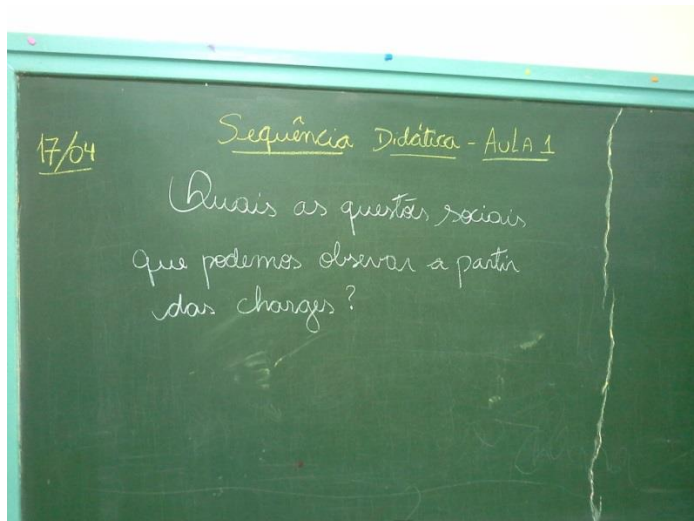 17/04
Sequência Didática - AULA 1
Quais as questões sociais
que podemos observar a partir
das charges?